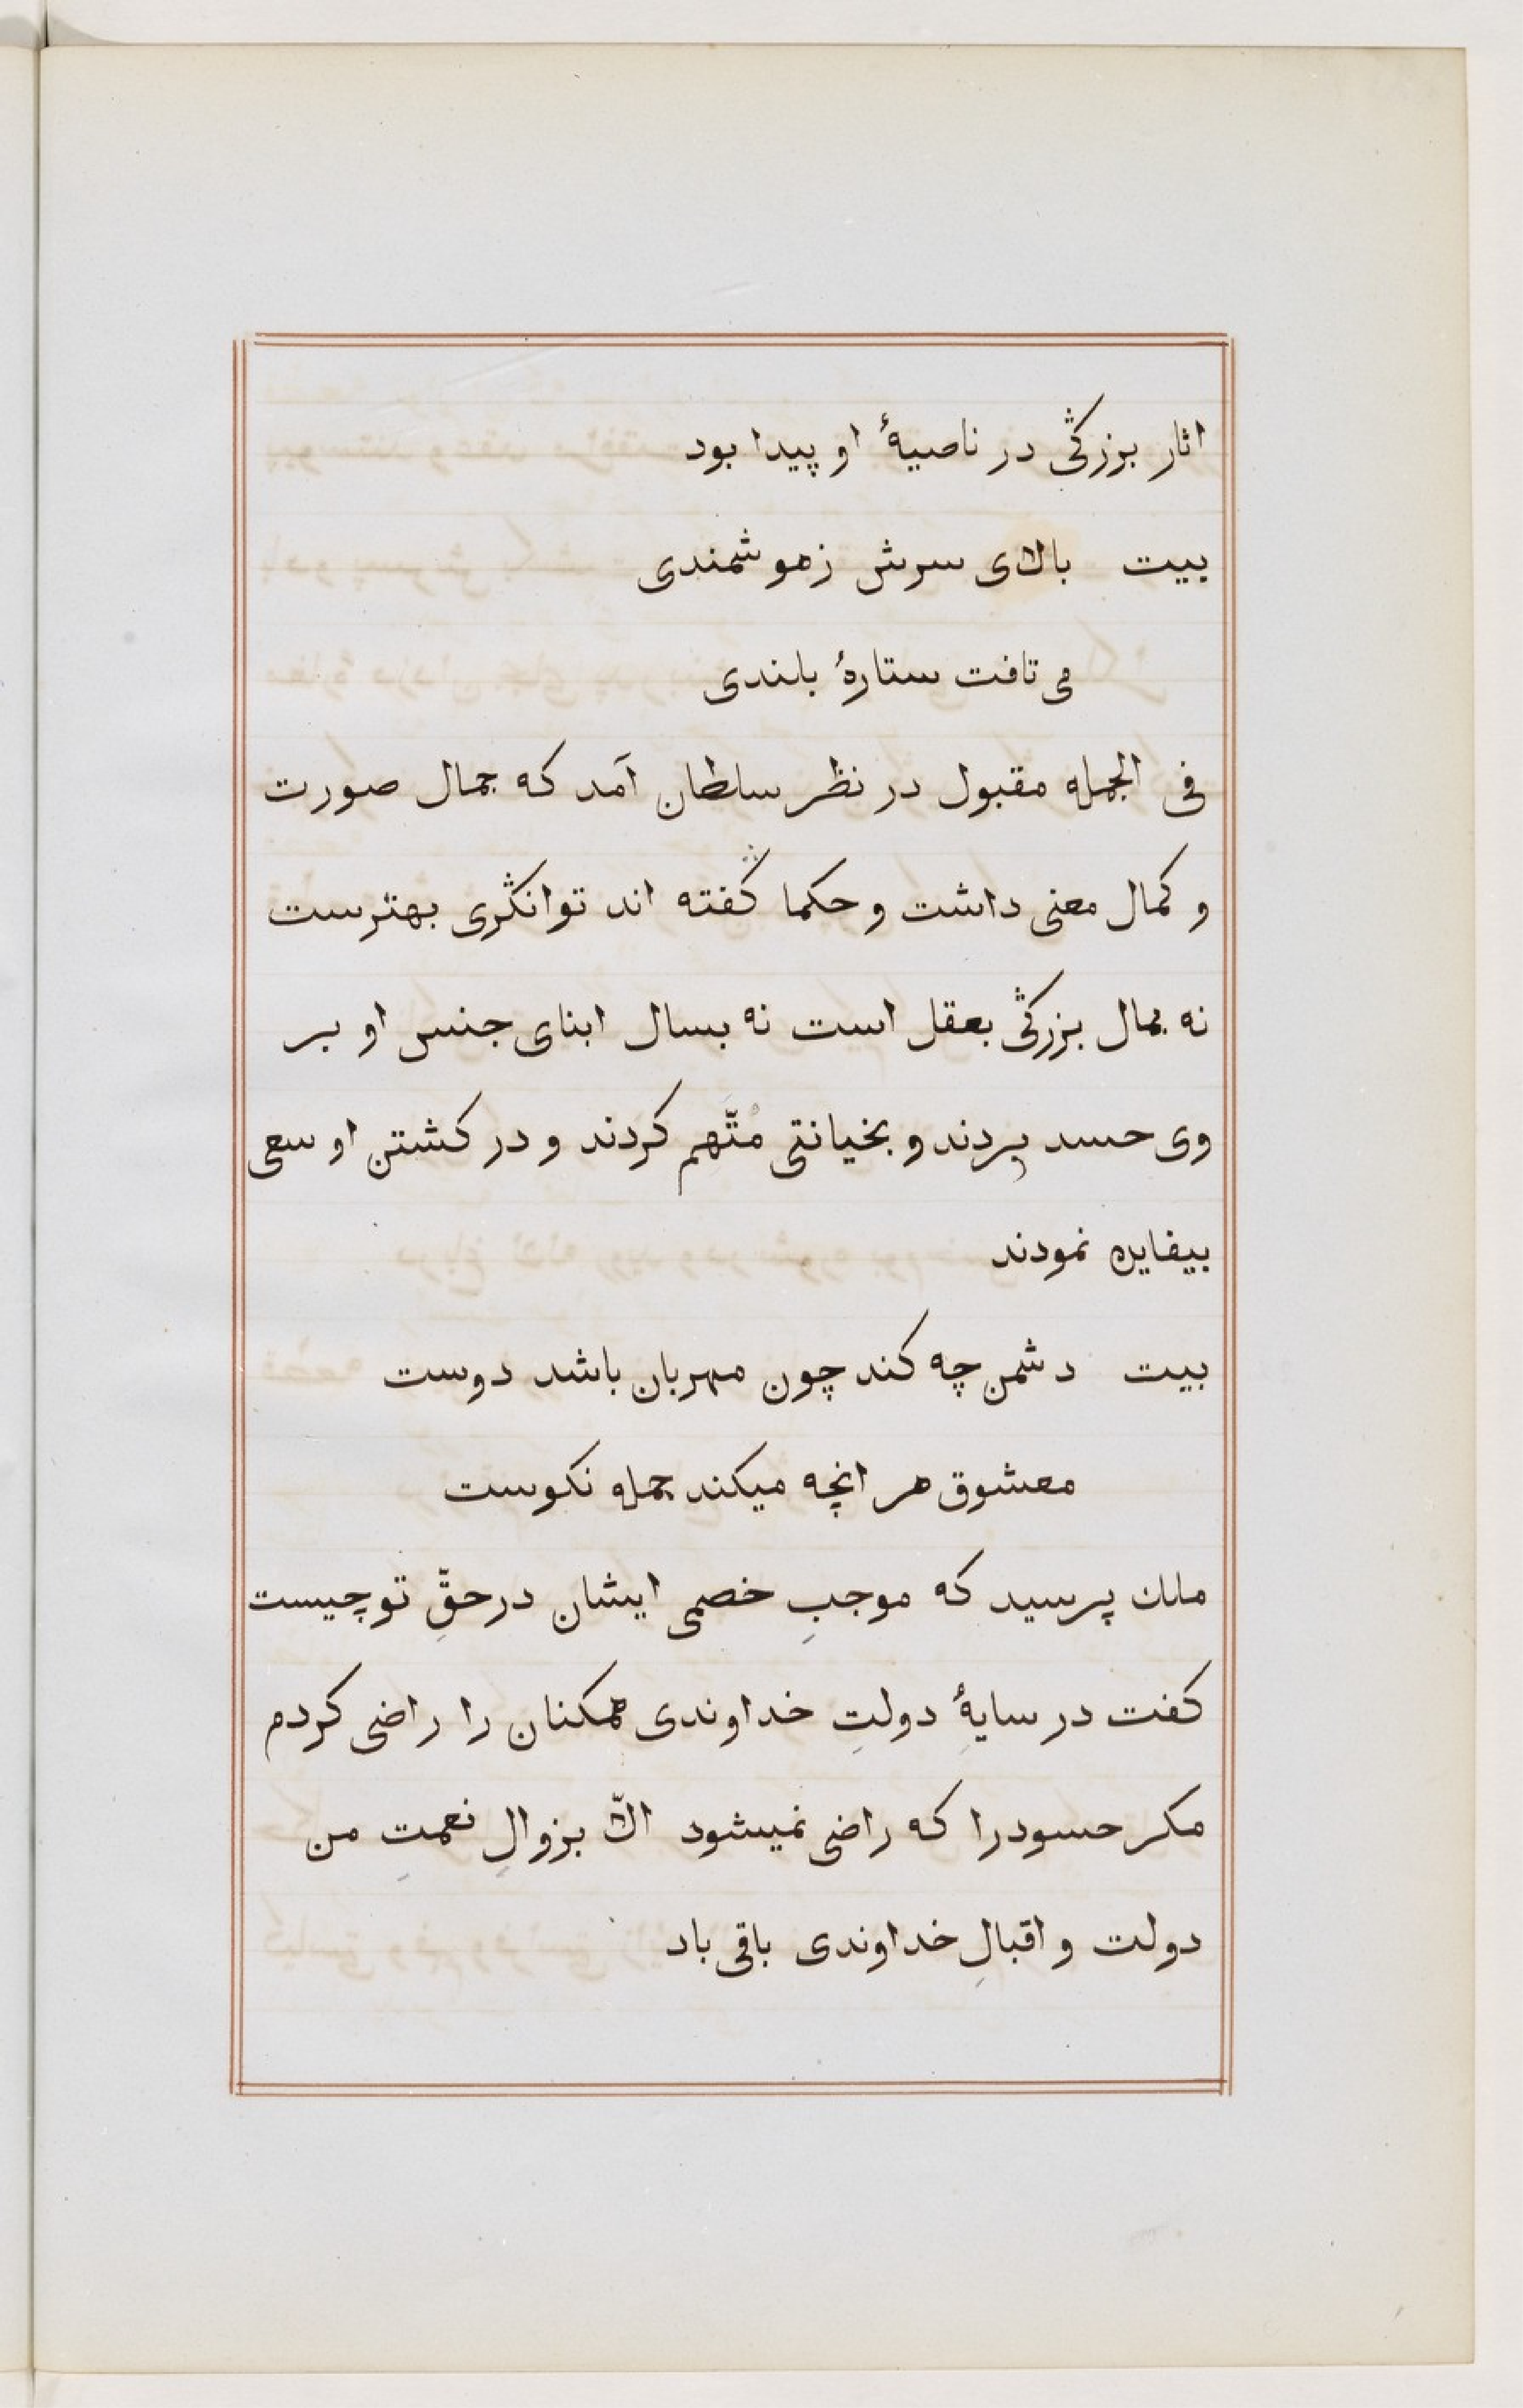 اثار بزرڭی در ناصیهٔ او پیدا بود
بیت بالای سرش زهوشمندی
می تافت ستارهٔ بلندی
فی الجمله مقبول در نظر سلطان آمد که جمال صورت
و کمال معنی داشت و حکما ڭفته اند توانڭری بهترست
نه بمال بزرڭی بعقل است نه بسال ابنای جنس او بر
وی حسد بردند و بخیانتی مُتَّهم کردند و در کشتن او سعی
بیفایده نمودند
بیت دشمن چه کند چون مهربان باشد دوست
معشوق هر انچه میکند جمله نکوست
ملك پرسید که موجبِ خصمی ایشان در حقِّ تو چیست
کفت در سایهٔ دولتِ خداوندی همکنان را راضی کردم
مکر حسود را که راضی نمیشود الّا بزوالِ نعمتِ من
دولت و اقبالِ خداوندی باقی باد